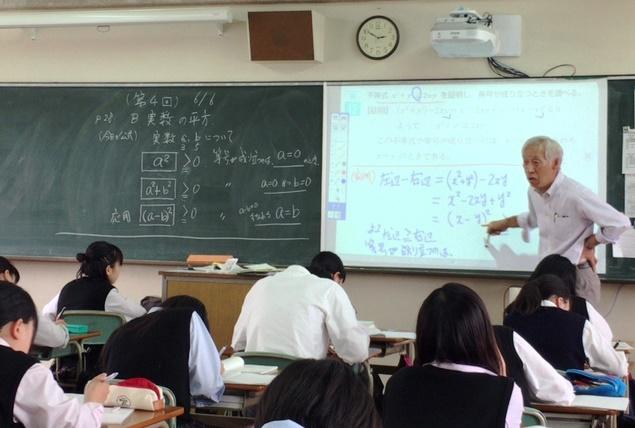 (第4回) 6/6
P28 B 実数の平方
(今日の公式) 実数 a, b について
a² ≧ 0 等号が成り立つのは、a=0 のとき
a²+b² ≧ 0 〃 a=b=0
応用 (a-b)² ≧ 0 a-b=0 a=b
不等式 を証明し、等号が成り立つときを調べる。
よって
この不等式の等号が成り立つのは
x=y のときである。
左辺-右辺 = (x²+y²)-2xy
= x²-2xy+y²
= (x-y)²
左辺≧右辺
等号が成り立つのは、